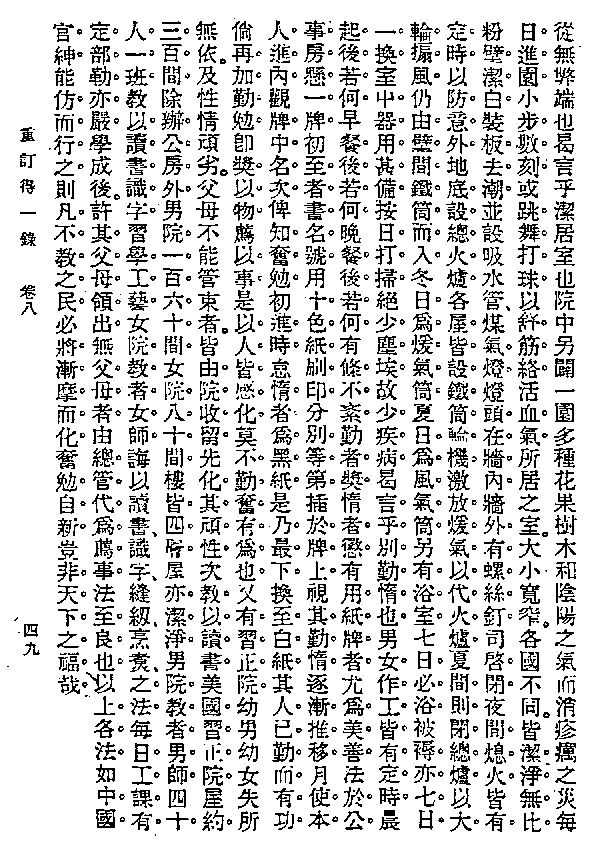 從無弊端也曷言乎潔居室也院中另闢一園多種花果樹木和陰陽之氣而消疹癘之災每
日進園小步數刻或跳舞打球以舒筋絡活血氣所居之室。大小寬窄。各國不同。皆潔淨無比
粉壁潔白裝板去潮並設吸水管、煤氣燈燈頭在牆內牆外有螺絲釘司啓閉夜間熄火皆有
定時以防意外地底設總火爐各屋皆設鐵筒輪機激放煖氣以代火爐夏間則閉總爐以大
輪搧風仍由壁間鐵筒而入冬日爲煖氣筒夏日爲風氣筒另有浴室七日必浴被褥亦七日
一換室中器用其備按日打掃絕少塵埃故少疾病曷言乎別勤惰也男女作工皆有定時晨
起後若何早餐後若何晚餐後若何有條不紊勤者奬惰者懲有用紙牌者尤爲美善法於公
事房懸一牌初至者書名號用十色紙刷印分別等第插於牌上視其勤惰逐漸推移月使本
人進內觀牌中名次俾知奮勉初進時怠惰者爲黑紙是乃最下換至白紙其人已勤而有功
倘再加勤勉卽奬以物薦以事是以人皆感化莫不勤奮有爲也又有習正院幼男幼女失所
無依。及性情頑劣。父母不能管束者。皆由院收留先化其頑性次教以讀書美國習正院屋約
三百間除辦公房外男院一百六十間女院八十間樓皆四層屋亦潔淨男院教者男師四十
人一班教以讀書識字習學工藝女院教者女師誨以讀書、識字、縫紉、烹飪之法每日工課有
定部勒亦嚴學成後。許其父母領出無父母者由總管代爲薦事法至良也以上各法如中國
官紳能仿而行之則凡不教之民必將漸摩而化奮勉自新豈非天下之福哉
重訂得一錄 卷八 四九